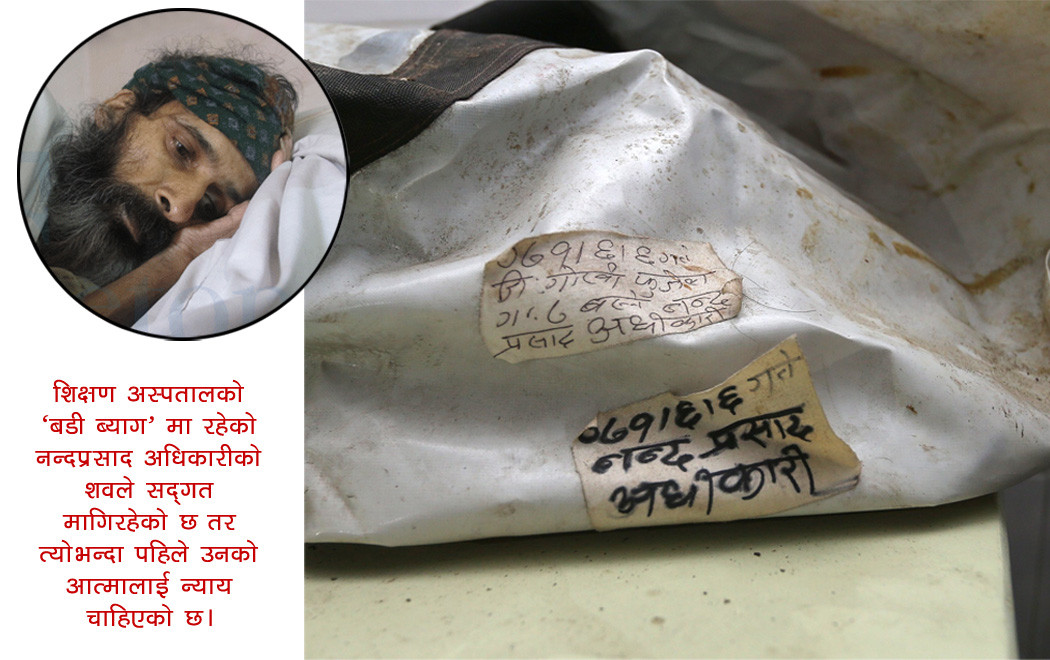 शिक्षण अस्पतालको
‘बडी ब्याग’ मा रहेको
नन्दप्रसाद अधिकारीको
शवले सद्‌गत
मागिरहेको छ तर
त्योभन्दा पहिले उनको
आत्मालाई न्याय
चाहिएको छ।
०७१।६।६ गते
जि. गोरखा फुजेल
गा. ८ बस्ने नन्द
प्रसाद अधीकारी
०७१।६।६ गते
नन्द प्रसाद
अधीकारी